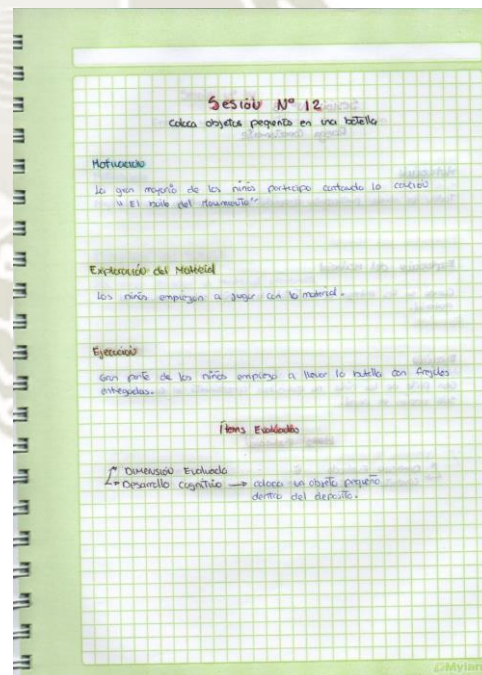 Sesión N° 12
Coloca objetos pequeños en una botella
Motivación
La gran mayoría de los niños participo cantando la canción
" El baile del movimiento"
Exploración del Material
Los niños empiezan a jugar con lo material.
Ejecución
Gran parte de los niños empiezo a llenar la botella con frejoles
entregados.
Ítems Evaluados
Dimensión Evaluada
Desarrollo cognitivo → coloca un objeto pequeño
dentro del deposito.
Mylan